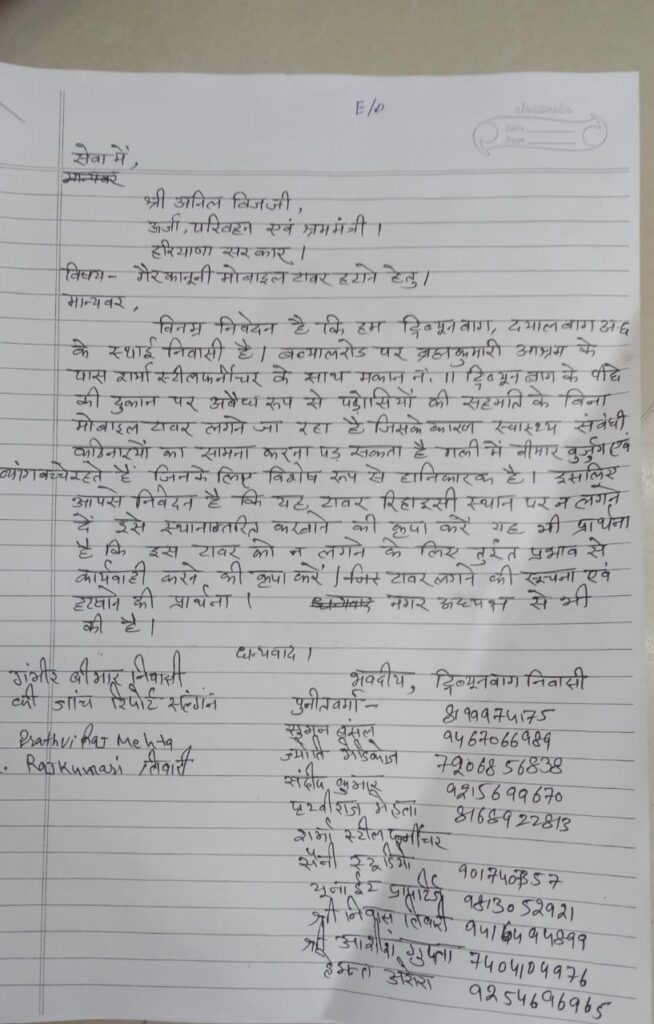 E/D
Date
Page
सेवा में,
मान्यवर
श्री अनिल विज जी,
ऊर्जा, परिवहन एवं श्रम मंत्री ।
हरियाणा सरकार ।
विषय - गैर कानूनी मोबाइल टावर हटाने हेतु ।
मान्यवर,
विनम्र निवेदन है कि हम ट्रिब्यून बाग, दयाल बाग
के स्थाई निवासी है । बब्याल रोड पर ब्रह्मकुमारी आश्रम के
पास शर्मा स्टील फर्नीचर के साथ मकान नं. 11 ट्रिब्यून बाग के
की दुकान पर अवैध्य रूप से पड़ोसियों की सहमति के बिना
मोबाइल टावर लगने जा रहा है जिसके कारण स्वास्थ्य संबंधी
कठिनाइयों का सामना करना पड़ सकता है गली में बीमार बुर्जुग एवं
बच्चे रहते हैं जिनके लिए विशेष रूप से हानिकारक है । इसलिए
आपसे निवेदन है कि यह टावर रिहाइसी स्थान पर न लगने
दें इसे स्थानान्तरित करवाने की कृपा करें यह भी प्रार्थना
है कि इस टावर को न लगने के लिए तुरंत प्रभाव से
कार्यवाही करने की कृपा करें । टावर लगने की सूचना एवं
हटवाने की प्रार्थना । धन्यवाद नगर अध्यक्ष से भी
की है ।
धन्यवाद ।
गंभीर बीमार निवासी
की जांच रिपोर्ट सलंगन
Prathvi Raj Mehta
. Rajkumari तिवारी
भवदीय, ट्रिब्यून बाग निवासी
पुनीत वर्मा - 8199974175
सुमन बंसल 9467066989
ज्योति मेडिकोज 7206856838
संदीप कुमार 9215699670
पृथ्वीराज मेहता 8168922813
शर्मा स्टील फर्नीचर
सैनी स्टूडियो
यूनाईट 9813052921
श्री निवास तिवारी
श्री आशीष गुप्ता 7404104976
हेमन्त अरोरा 9254696965